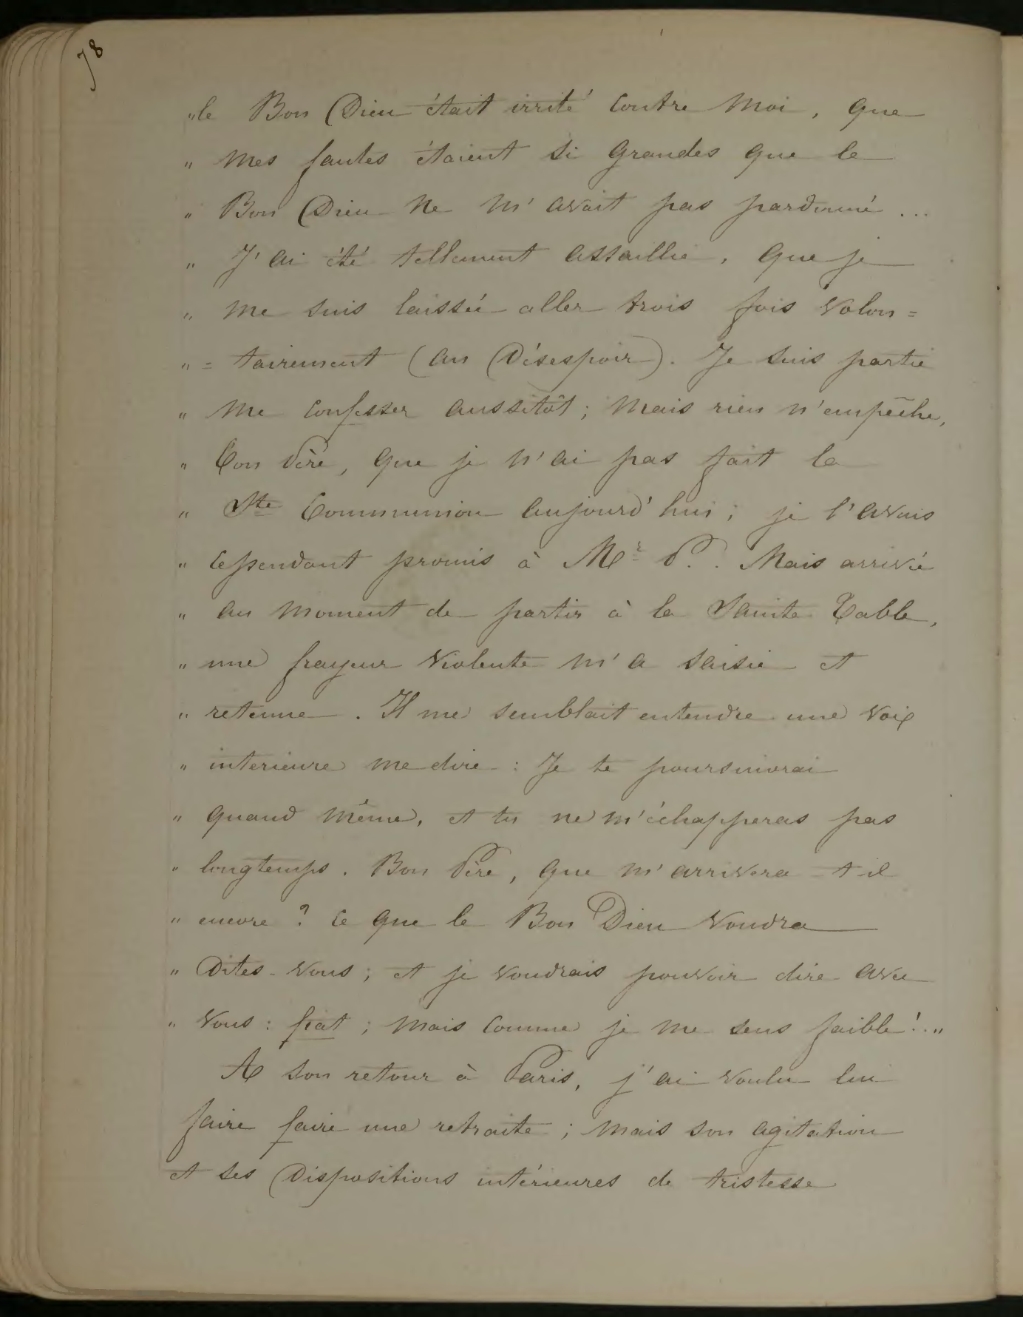 78
"le Bon Dieu était irrité contre moi, que
" mes fautes étaient si grandes que le
" Bon Dieu ne m'avait pas pardonné ...
" J'ai été tellement assaillie, que je
" me suis laissée aller trois fois volon=
" = tairement (au Désespoir). Je suis partie
" me confesser aussitôt; mais rien n'empêche,
" Bon Père, que je n'ai pas fait la
" Ste Communion aujourd'hui; je l'avais
" cependant promis à Mr P.. Mais arrivée
" au moment de partir à la Sainte Table,
" une frayeur violente m'a saisie et
" retenue. Il me semblait entendre une voix
" interieure me dire : Je te poursuivrai
" quand même, et tu ne m'échapperas pas
" longtemps. Bon Père, que m'arrivera-t-il
" encore ? Ce que le Bon Dieu voudra
" Dites-vous; et je voudrais pouvoir dire avec
" vous : fiat; mais comme je me sens faible!.."
A son retour à Paris, j'ai voulu lui
faire faire une retraite; mais son agitation
et ses Dispositions intérieures de tristesse